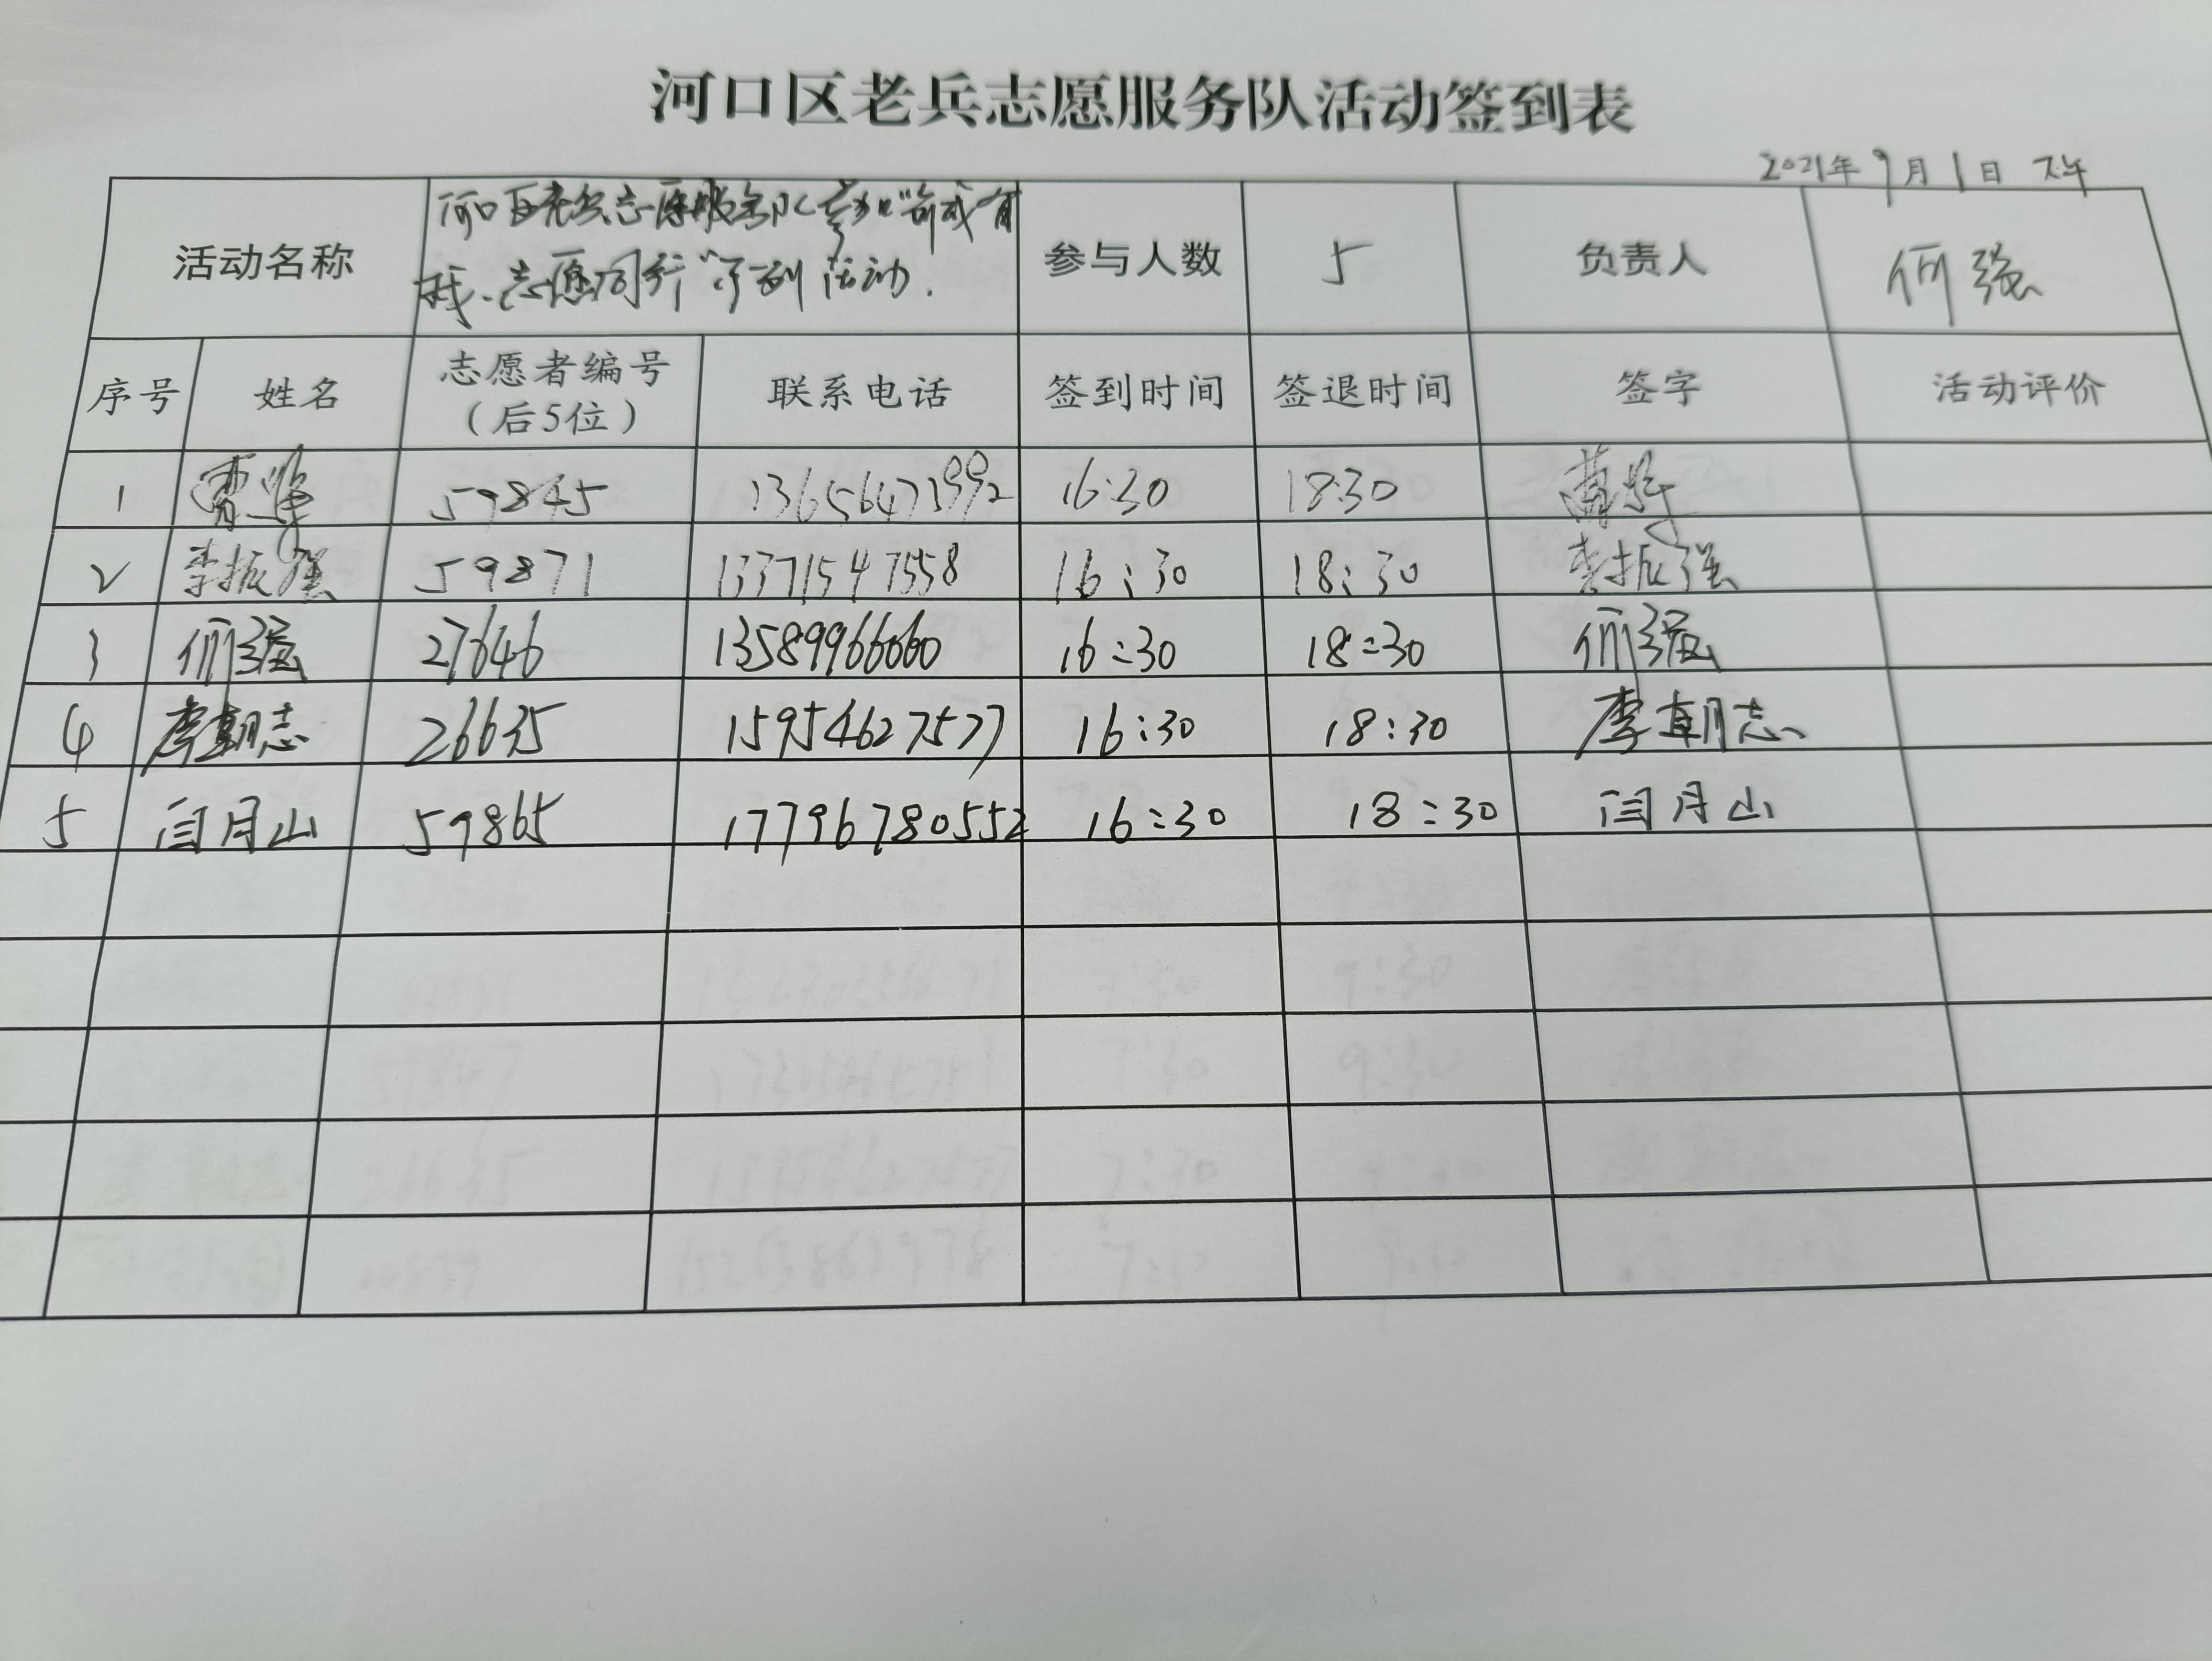 河口区老兵志愿服务队活动签到表
2021年9月1日 下午
活动名称 河口区老兵志愿服务队参加“创城有我、志愿同行”系列活动. 参与人数 5 负责人 何强
序号 姓名 志愿者编号（后5位） 联系电话 签到时间 签退时间 签字 活动评价
1 59845 13656471992 16:30 18:30
2 李振强 59871 13371547558 16:30 18:30 李振强
3 何强 27646 13589966060 16:30 18:30 何强
4 李朝志 26635 15954627577 16:30 18:30 李朝志
5 闫月山 59865 17796780552 16:30 18:30 闫月山